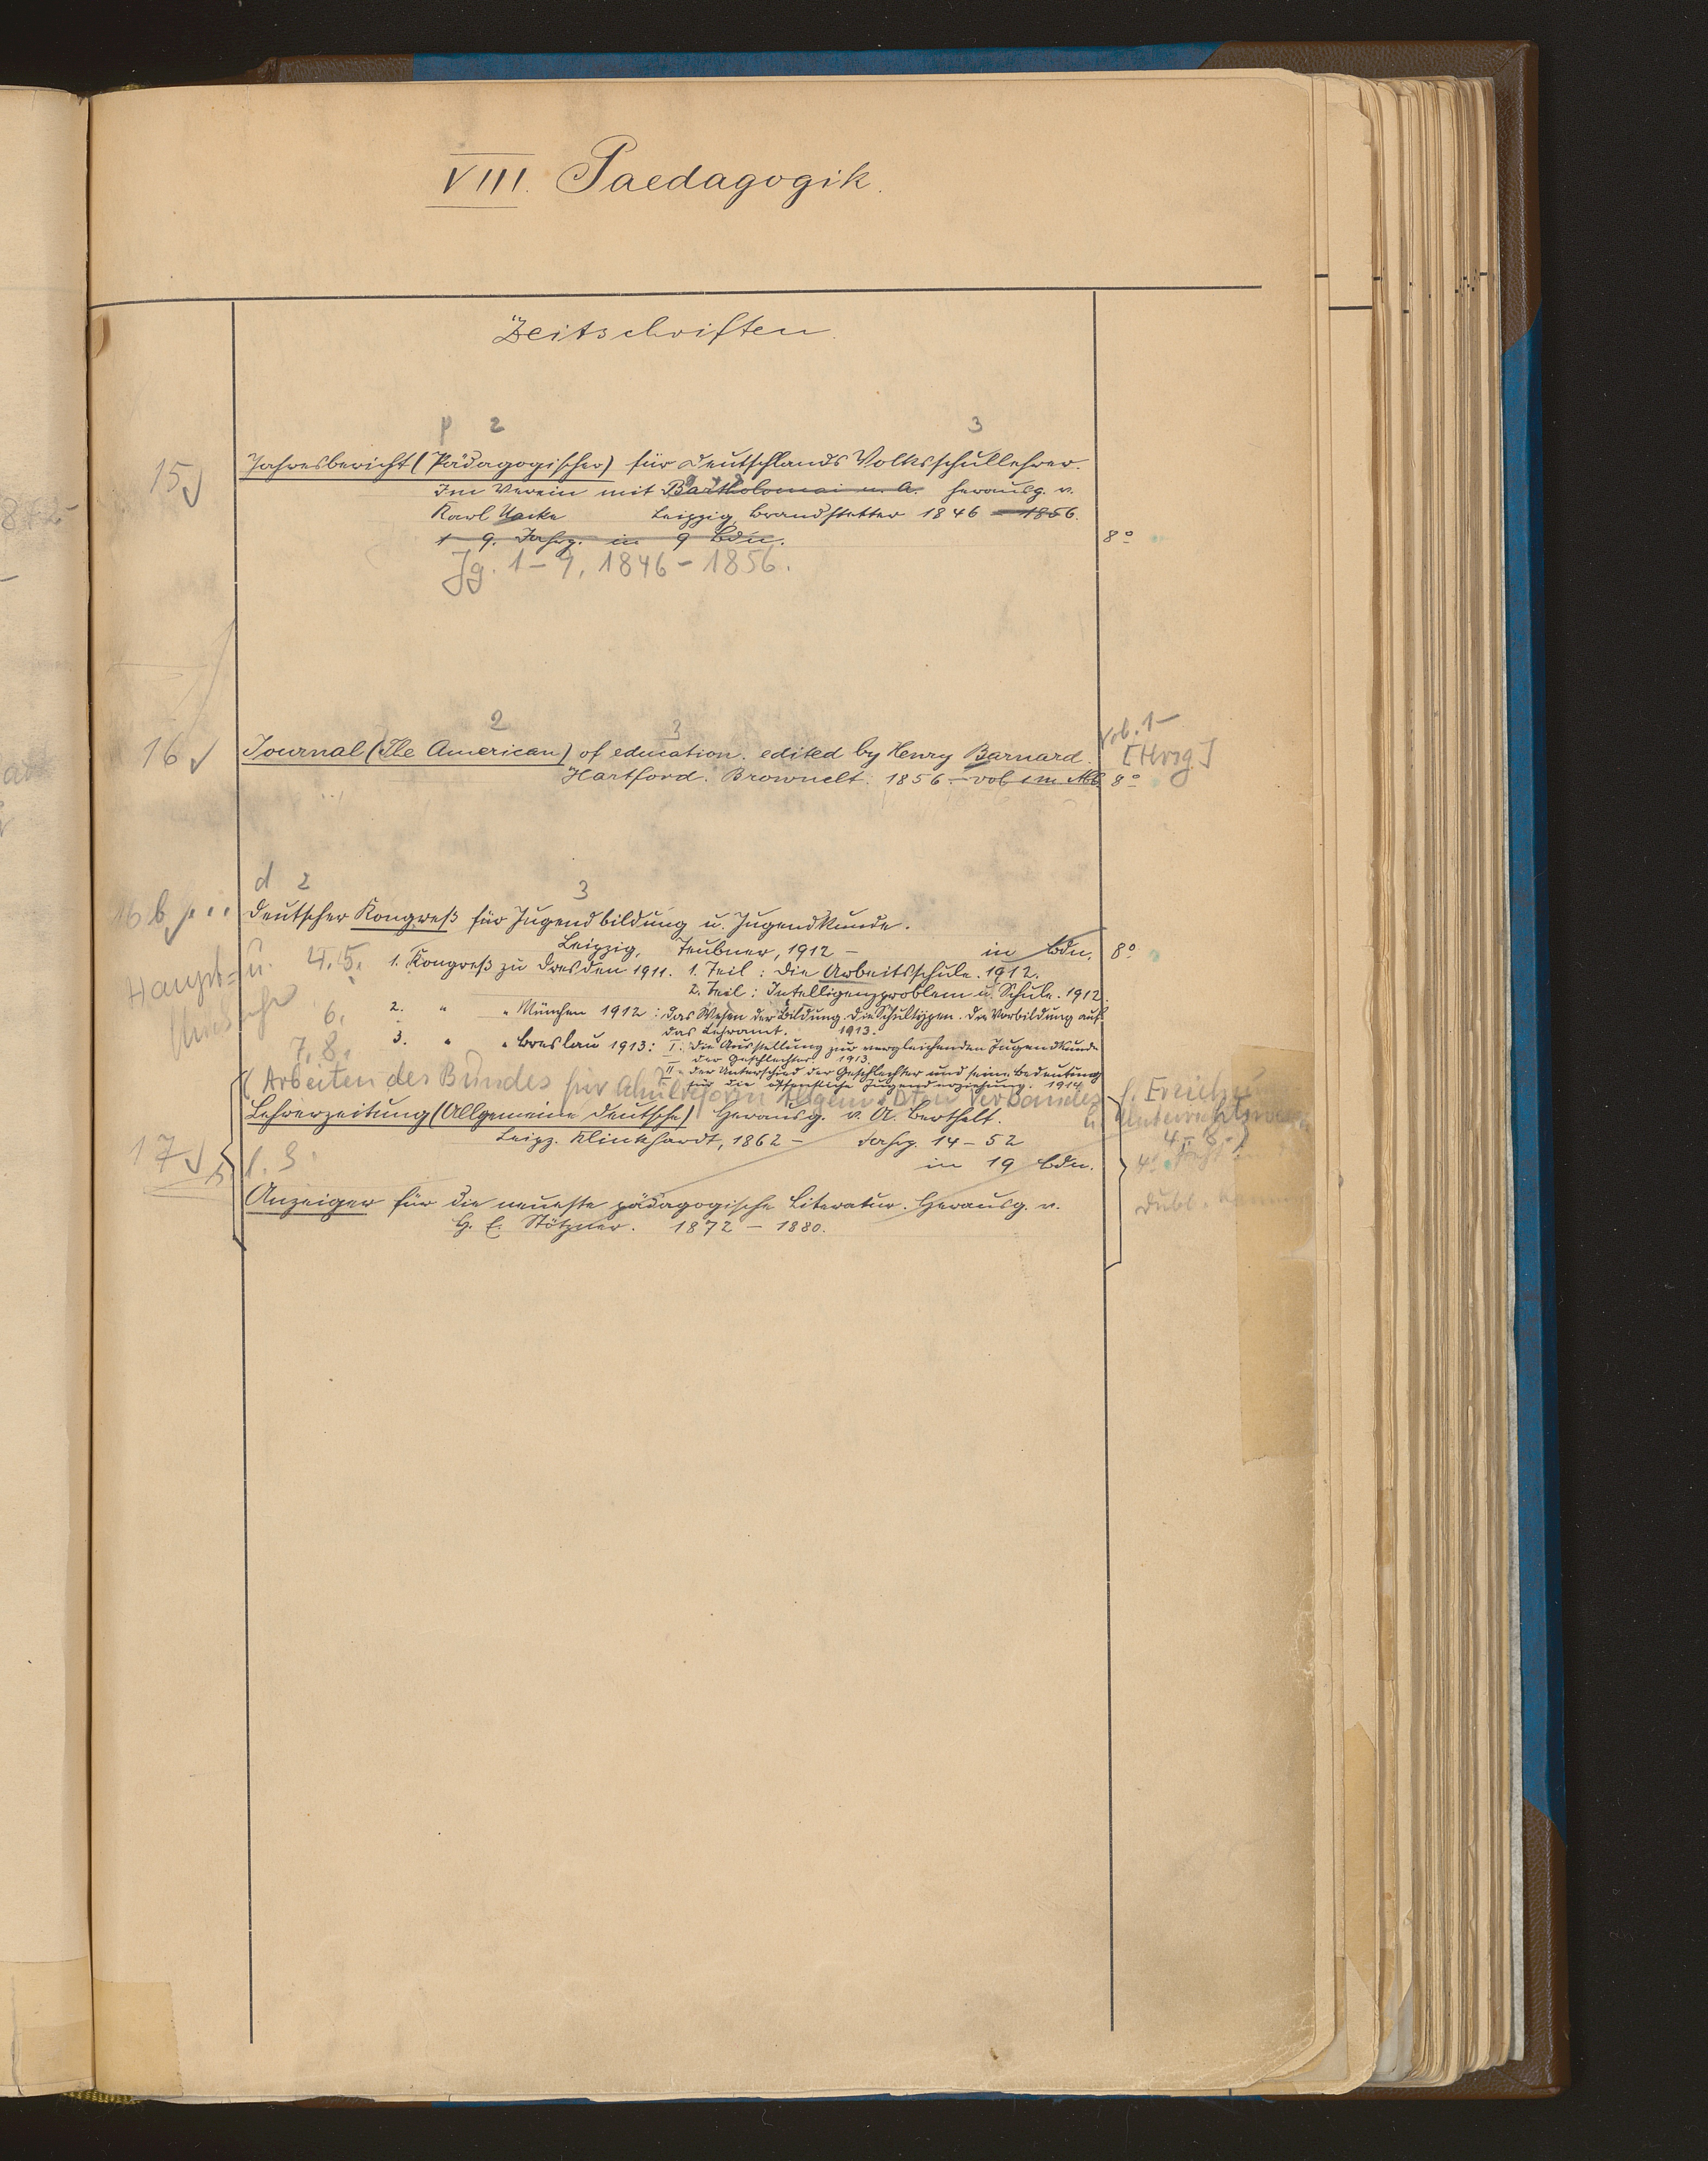 VIII. Paedagogik.
Zeitschriften.
p 2 3
15
Jahresbericht (Pädagogischer) für Deutschlands Volksschullehrer.
Im Verein mit Bartholomai u. A. herausg. v.
Karl Nacke Leipzig, Brandstetter 1846 – 1856.
1–9. Jahrg. in 9 Bdn. 8°
Jg. 1–9, 1846–1856.
2 3 Vol. 1–
16 Journal (The American) of education. edited by Henry Barnard. [Hrsg]
Hartford. Brownelt. 1856. – vol 1 m. Abb. 8°
d 2 3
16b Deutscher Kongreß für Jugendbildung u. Jugendkunde.
Leipzig, Teubner, 1912 – in Bdn. 8°
Haupt= u. 4. 5. 1. Kongreß zu Dresden 1911. 1. Teil: Die Arbeitsschule. 1912.
2. Teil: Intelligenzproblem u. Schule. 1912.
6. 2. " " München 1912: Das Wesen der Bildung. Die Schultypen. Die Vorbildung auf
das Lehramt. 1913.
7. 8. 3. " " Breslau 1913: I. Die Ausstellung zur vergleichenden Jugendkunde
der Geschlechter. 1913.
II. Der Unterschied der Geschlechter und seine Bedeutung
für die öffentliche Jugenderziehung. 1914.
(Arbeiten des Bundes für Schulreform Allgem. Dten Verbandes
f. Erziehu
u. Unterrichtswesen
4–8.)
Lehrerzeitung (Allgemeine Deutsche) Herausg. v. A. Berthelt.
Leipz. Klinkhardt, 1862 – Jahrg. 14–52
17 in 19 Bdn. 4°
Anzeiger für die neueste pädagogische Literatur. Herausg. v.
H. E. Stötzner. 1872 – 1880.